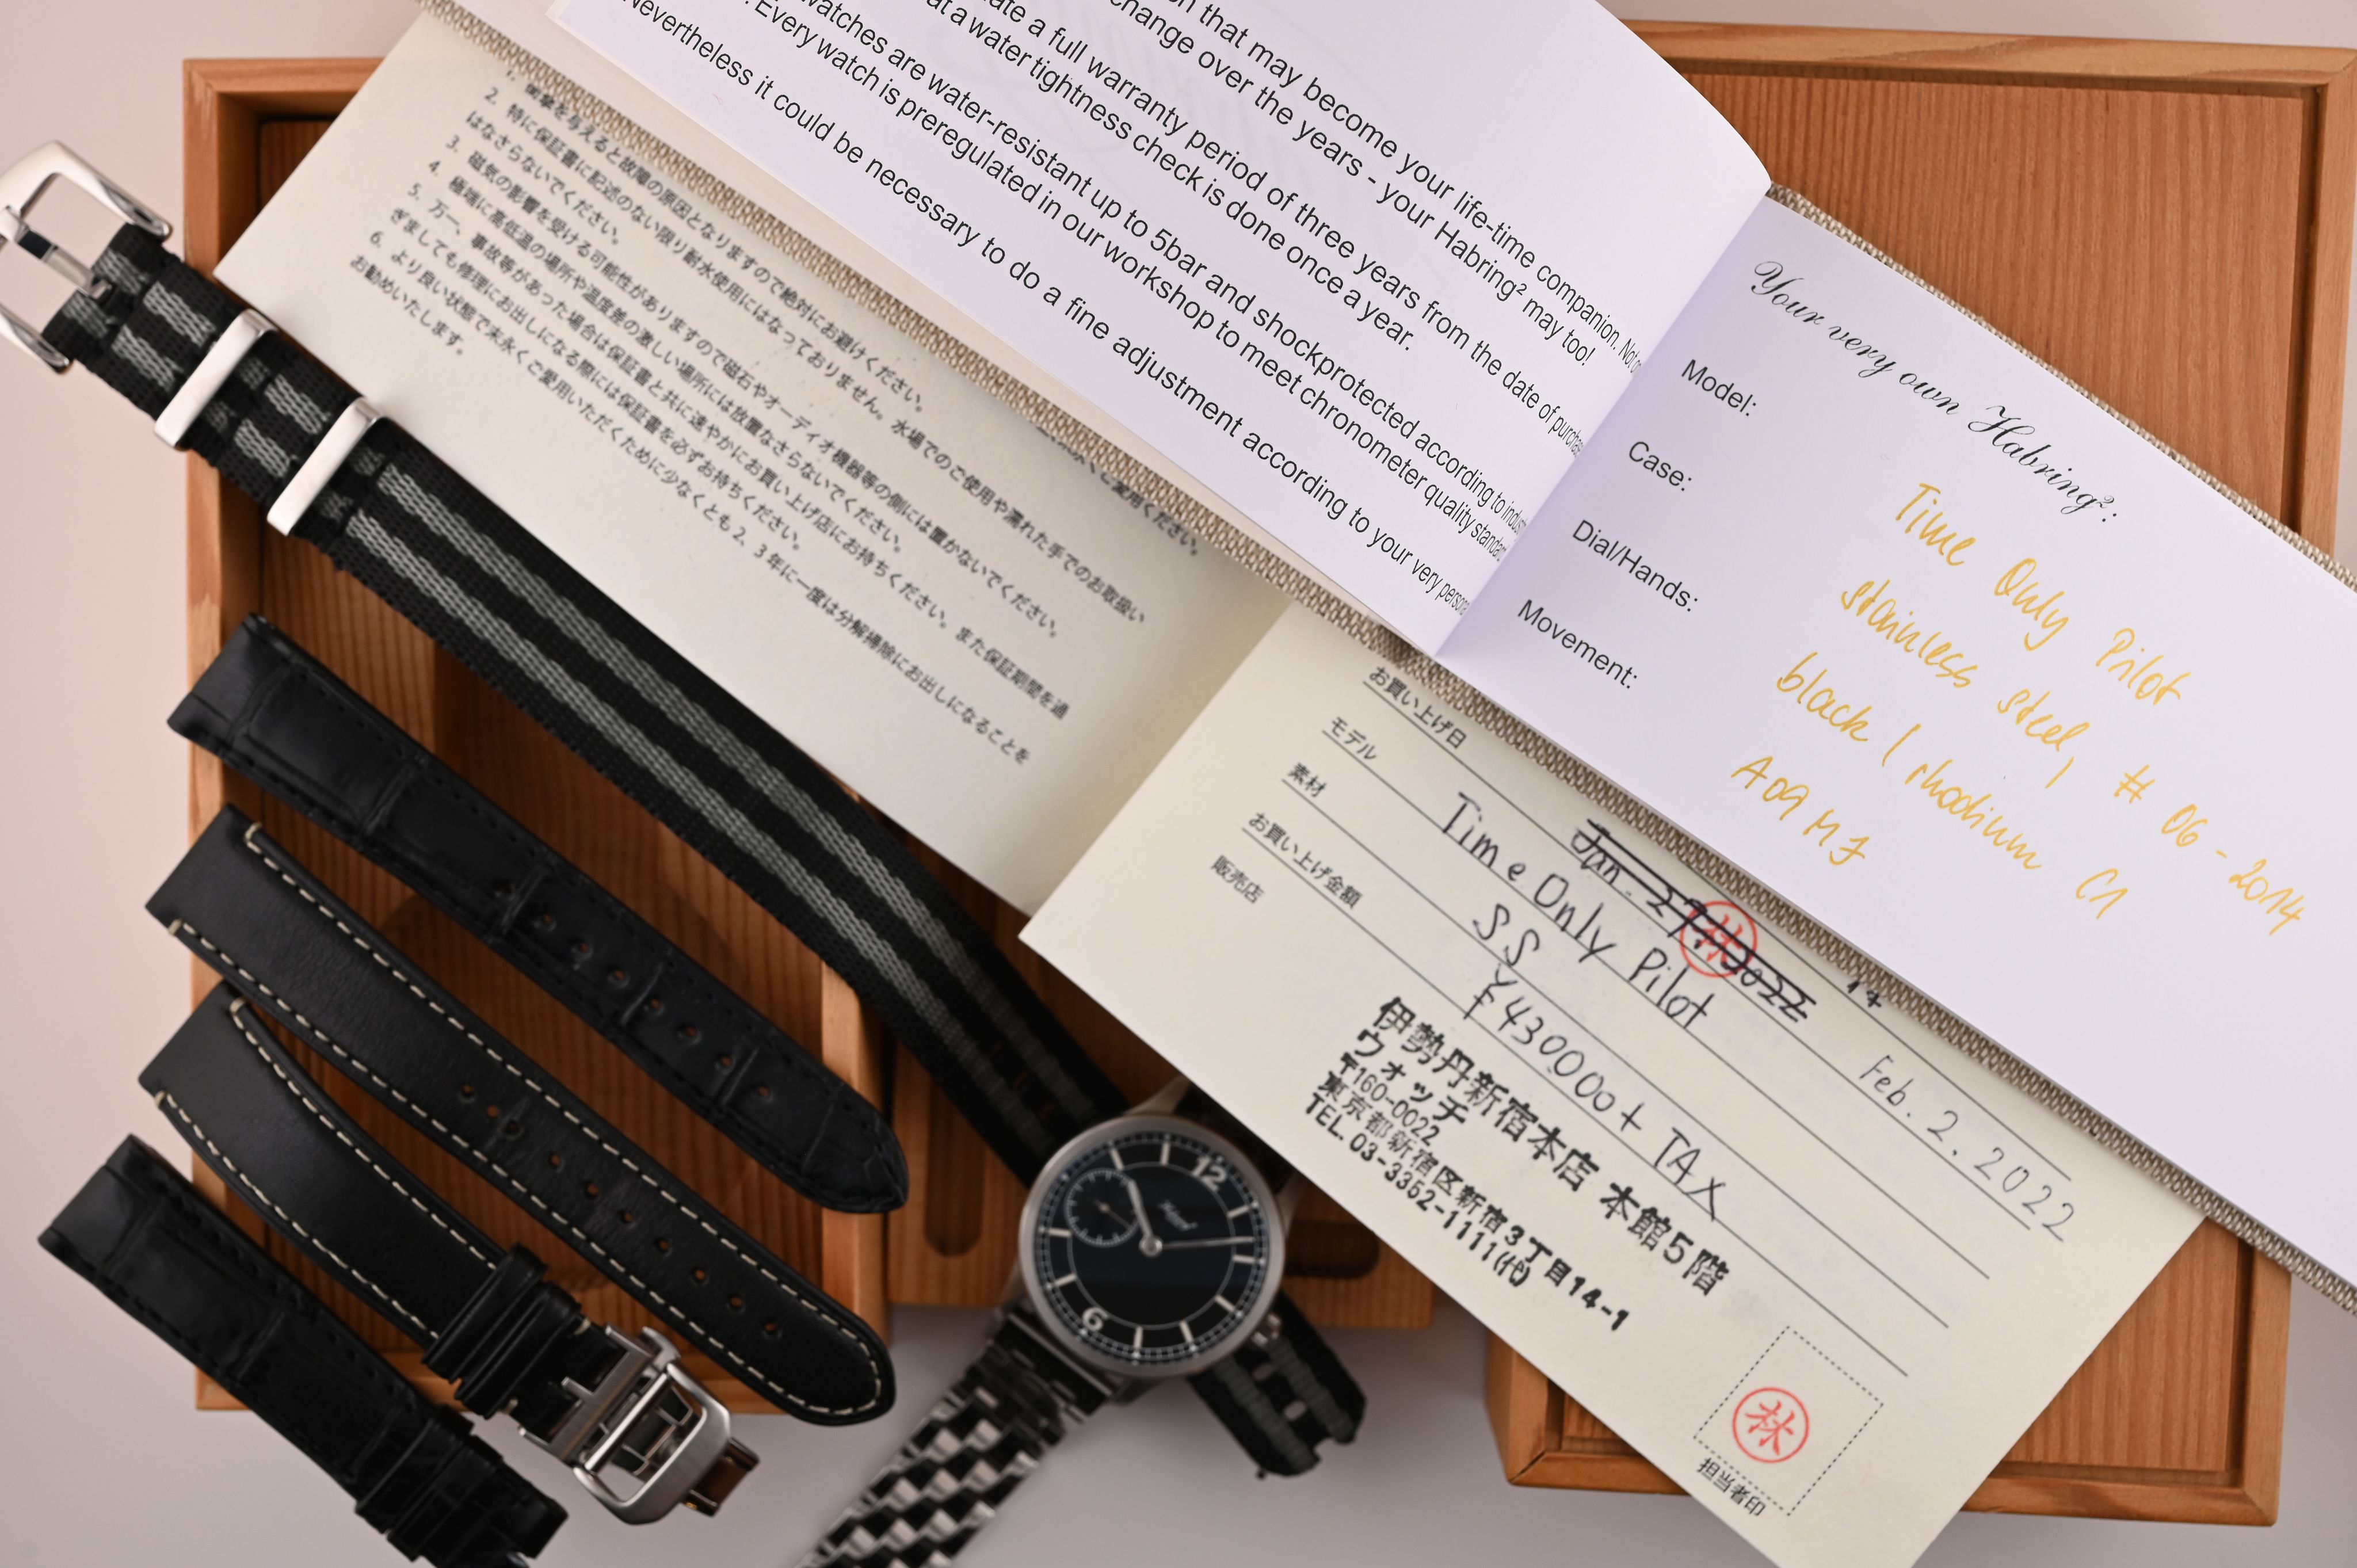 n that may become your life-time companion.
change over the years - your Habring² may too!
ate a full warranty period of three years from the date of purchase
at a water tightness check is done once a year.
watches are water-resistant up to 5bar and shockprotected according to
. Every watch is preregulated in our workshop to meet chronometer quality
Nevertheless it could be necessary to do a fine adjustment according to your very
Your very own Habring²:
Model: Time Only Pilot
Case: stainless steel, # 06-2014
Dial/Hands: black / rhodium C1
Movement: A09MJ
ご愛用ください。
衝撃を与えると故障の原因となりますので絶対にお避けください。
2. 特に保証書に記述のない限り耐水使用にはなっておりません。水場でのご使用や濡れた手でのお取扱い
はなさらないでください。
3. 磁気の影響を受ける可能性がありますので磁石やオーディオ機器等の側には置かないでください。
4. 極端に高低温の場所や温度差の激しい場所には放置なさらないでください。
5. 万一、事故等があった場合は保証書と共に速やかにお買い上げ店にお持ちください。また保証期間を過
ぎましても修理にお出しになる際には保証書を必ずお持ちください。
6. より良い状態で末永くご愛用いただくために少なくとも2、3年に一度は分解掃除にお出しになることを
お勧めいたします。
お買い上げ日 Jan. 2022 林 Feb. 2. 2022
モデル Time Only Pilot
素材 SS
お買い上げ金額 ¥430000+TAX
販売店
伊勢丹新宿本店 本館5階
ウォッチ
〒160-0022
東京都新宿区新宿3丁目14-1
TEL. 03-3352-1111(代)
林
担当者印
12
Habring²
6